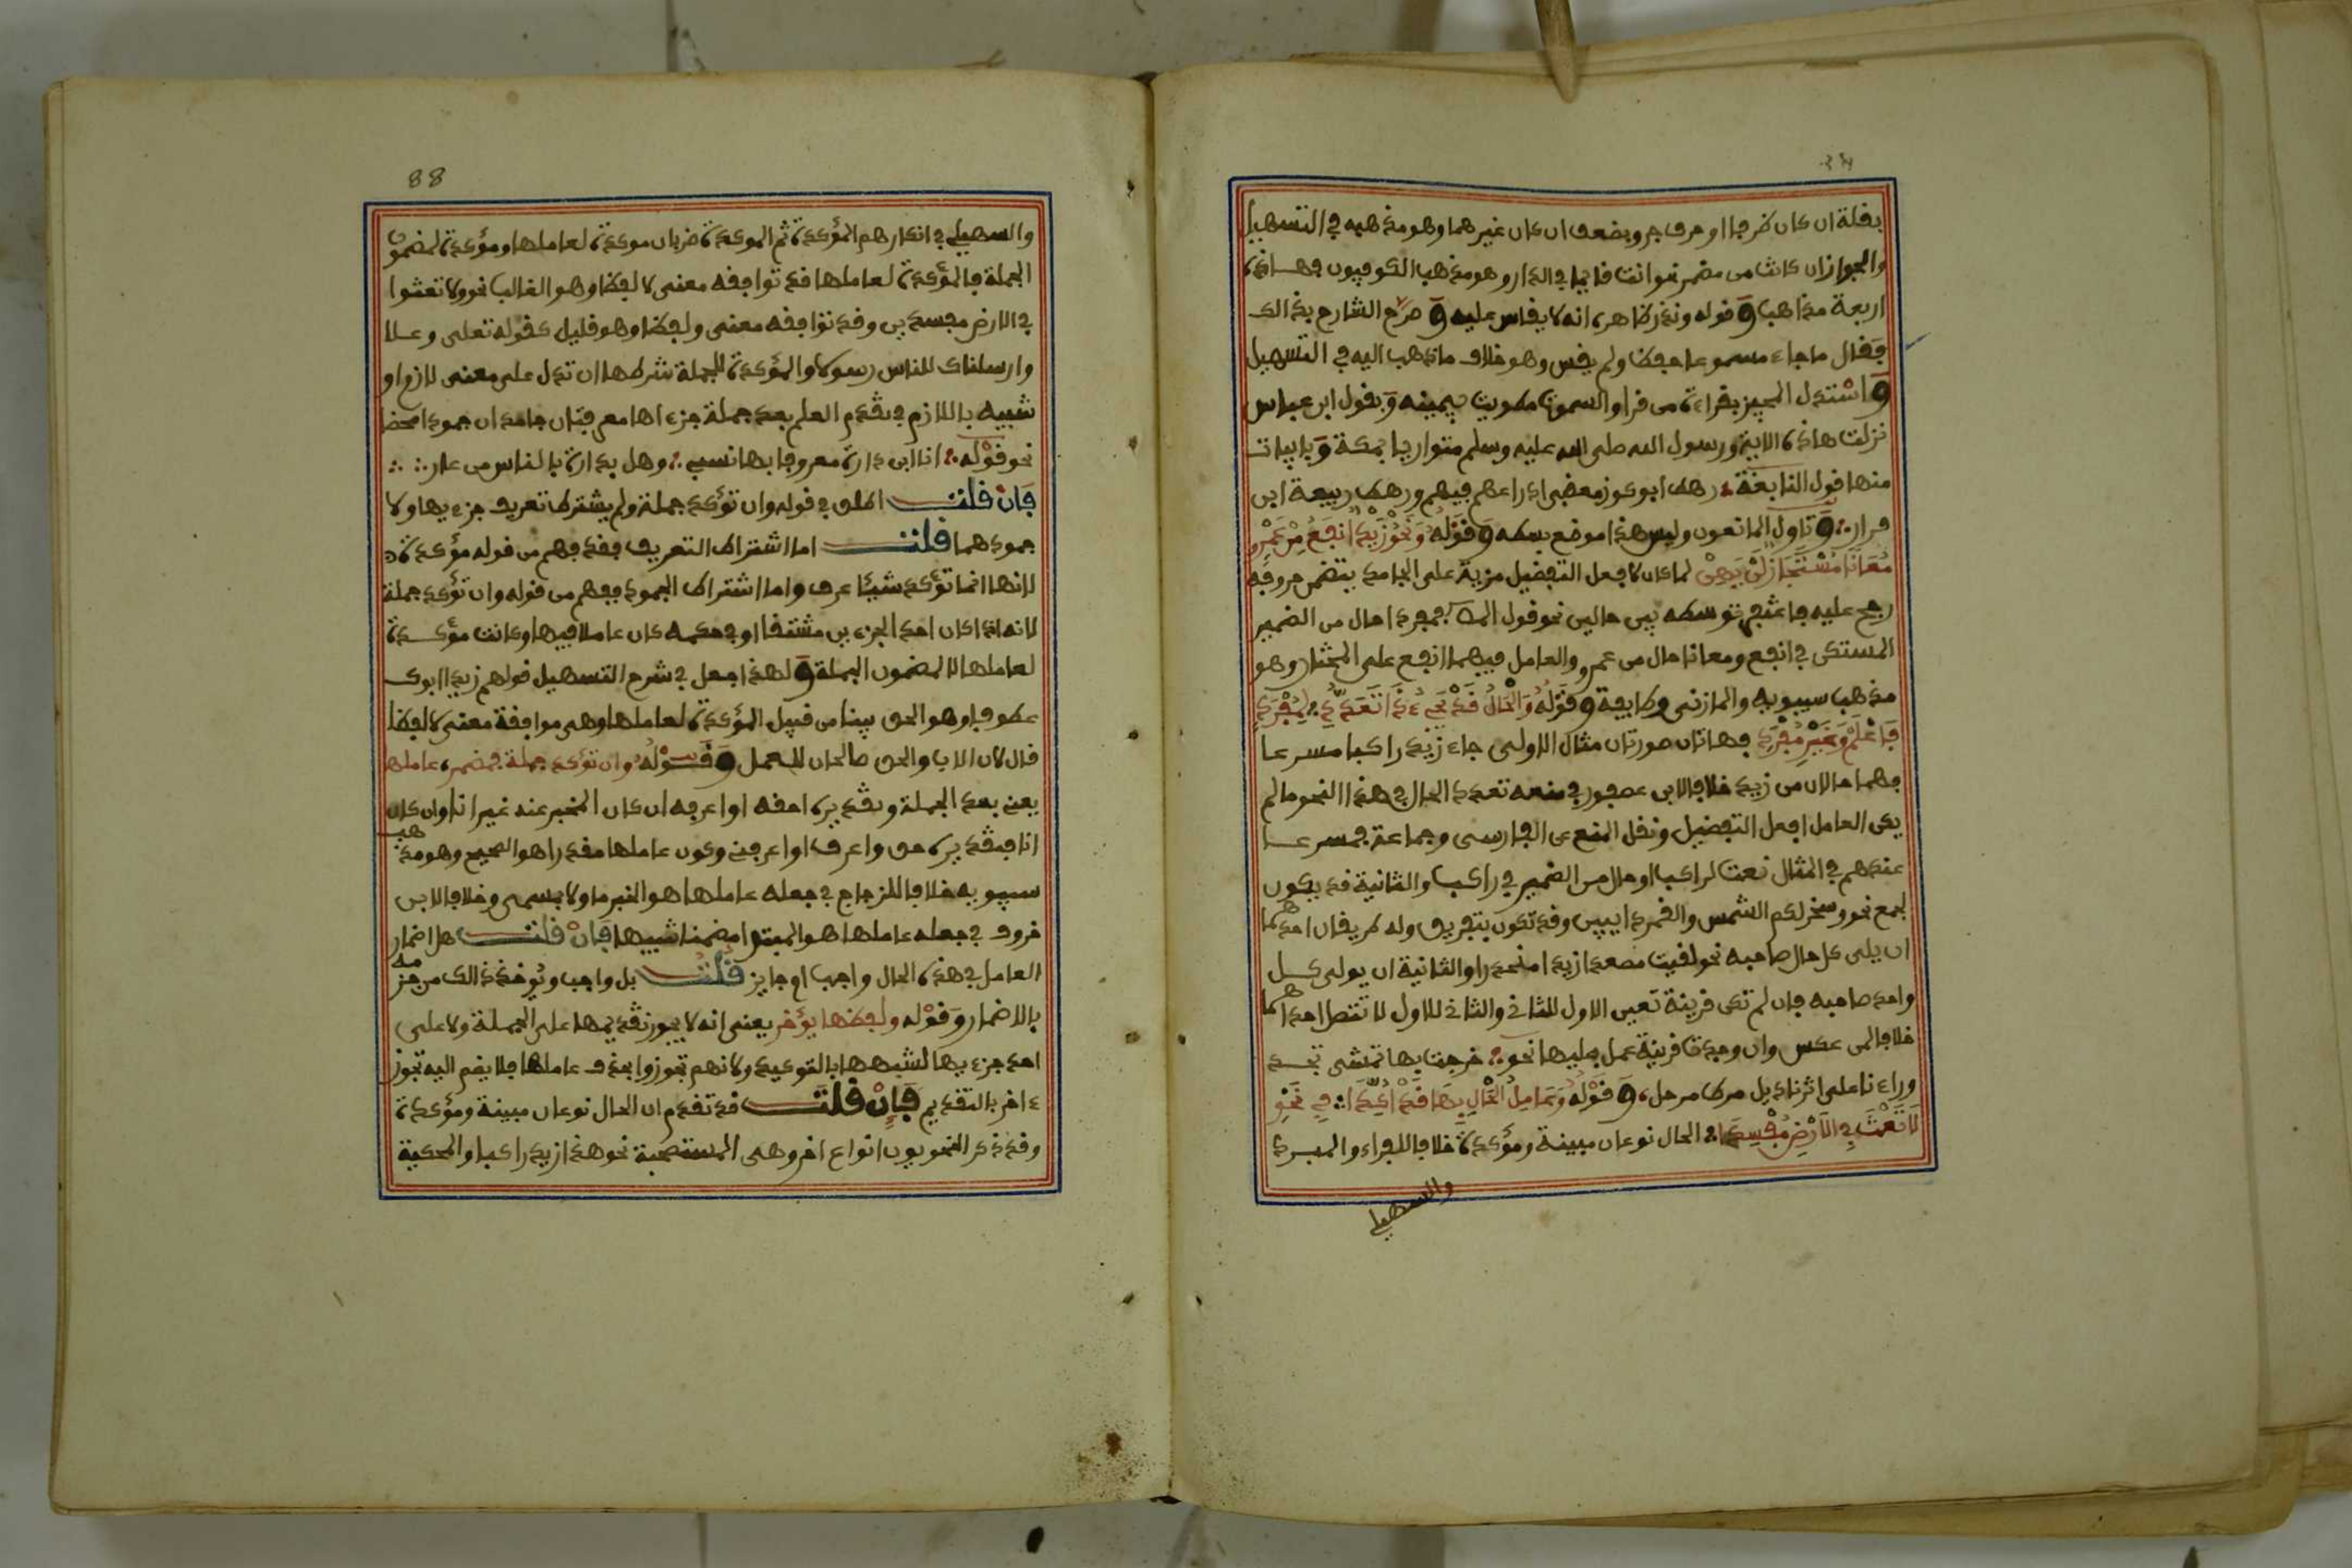 بقلة ان كان ظرفا او حرف جر ويضعف ان كان غيرهما وهو مذهبه في التسهيل
والجواز ان كانت من مضمر نحو انت قايما في الدار وهو مذهب الكوفيون فهاذه
اربعة مذاهب وقوله ونذر ظاهره انه لا يقاس عليه وصرح الشارح بذالك
فقال ما جاء مسموعا حفظ ولم يقس وهو خلاف ما ذهب اليه في التسهيل
واستدل المجيز بقراءة من قرا والسموت مطويت بيمينه وبقول ابن عباس
نزلت هاذه الاية ورسول الله صلى الله عليه وسلم متواريا بمكة وبابيات
منها قول النابغة رهط ابن كوز محقبى ادراعهم فيهم ورهط ربيعة ابن
حرار وتاول المانعون وليس هذا موضع بسطه وقوله وَنَحْوُ زَيْدٌ انفَعُ مِنْ عَمْرٍو
مُعَانًا مُسْتَجَازٌ لَنْ يَهِنْ لما كان لافعل التفضيل مزية على الجامد بتضمن حروفه
رجح عليه فاغتفر توسطه بين حالين نحو قول المص فمفردا حال من الضمير
المستكن في انفع ومعانا حال من عمرو والعامل فيهما انفع على المختار وهو
مذهب سيبويه والمازنى وطايفة وقوله وَالْحَالُ قَدْ يَجِىءُ ذَا تَعَدُّدِ لِمُفْرَدٍ
فَاعْلَمْ وَغَيْرِ مُفْرَدِ فهاتان صورتان مثال الاولى جاء زيد راكبا مسرعا
فهما حالان من زيد خلافا لابن عصفور في منعه تعدد الحال في هذا النحو ما لم
يكن العامل افعل التفضيل ونقل المنع عن الفارسى وجماعة فمسرعا
عندهم في المثال نعت لراكبا او حال من الضمير في راكبا والثانية قد يكون
لجمع نحو وسخر لكم الشمس والقمر دايبين وقد تكون بتفريق وله طريقان احدهما
ان يلى كل حال صاحبه نحو لقيت مصعدا زيدا منحدرا والثانية ان يولى كل
واحد صاحبه فان لم تكن قرينة تعين الاول للثانى والثانى للاول لا تتصل احداهما
خلافا لمن عكس وان وجدت قرينة عمل عليها نحو خرجت بها نمشى تجر
وراءنا على اثرنا ذيل مرط مرحل وقوله وَعَامِلُ الْحَالِ بِهَا قَدْ أُكِّدَا في نَحْوِ
لَا تَعْثَ فِي الْأَرْضِ مُفْسِدَا الحال نوعان مبينة ومؤكدة خلافا للفراء والمبرد
والسهيلى
88
والسهيلى في انكارهم المؤكدة ثم الموكدة ضربان موكدة لعاملها ومؤكدة لمضمون
الجملة فالمؤكدة لعاملها قد توافقه معنى لا لفظا وهو الغالب نحو ولا تعثوا
في الارض مفسدين وقد توافقه معنى ولفظا وهو قليل كقوله تعلى وعلا
وارسلناك للناس رسولا والمؤكدة للجملة شرطها ان تدل على معنى لازم او
شبيه باللازم في تقدم العلم بعد جملة جزءاها معرفتان جامدان جمودا محضا
نحو قوله انا ابن دارة معروفا بها نسبى وهل بدارة يا للناس من عار
فَإنْ قلت اطلق في قوله وان تؤكد جملة ولم يشترط تعريف جزءيها ولا
جمودهما قلت اما اشتراط التعريف فقد فهم من قوله مؤكدة
لانها انما تؤكد شيئا عرف واما اشتراط الجمود ففهم من قوله وان تؤكد جملة
لانه اذا كان احد الجزءين مشتقا او في حكمه كان عاملا فيها وكانت مؤكدة
لعاملها لا لمضمون الجملة ولهذا جعل في شرح التسهيل قولهم زيد ابوك
عطوفا وهو الحق بينا من قبيل المؤكدة لعاملها وهى موافقة معنى لا لفظا
قال لان الاب والحق صالحان للعمل وقوله وان تؤكد جملة فمضمر عاملها
يعنى بعد الجملة وتقديره احقه او اعرفه ان كان المخبر عنه غير انا وان كان
انا فتقديره حق واعرف او اعرفنى وكون عاملها مقدرا هو الصحيح وهو مذهب
سيبويه خلافا للزجاج في جعله عاملها هو الخبر ماولا بمسمى وخلافا لابن
خروف في جعله عاملها هو المبتدا مضمنا تنبيها فَإنْ قلت هل اضمار
العامل في هذه الحال واجب او جايز قلت بل واجب ويُوخذ ذالك من جزمه
بالاضمار وقوله ولفظها يؤخر يعنى انه لا يجوز تقديمها على الجملة ولا على
احد جزءيها لشبهها بالتوكيد ولانهم تجوزوا بحذف عاملها فلا يضم اليه تجوز
ءاخر بالتقديم فَإنْ قلت قد تقدم ان الحال نوعان مبينة ومؤكدة
وقد ذكر النحويون انواع اخر وهى المستصحبة نحو هذا زيد راكبا والمحكية